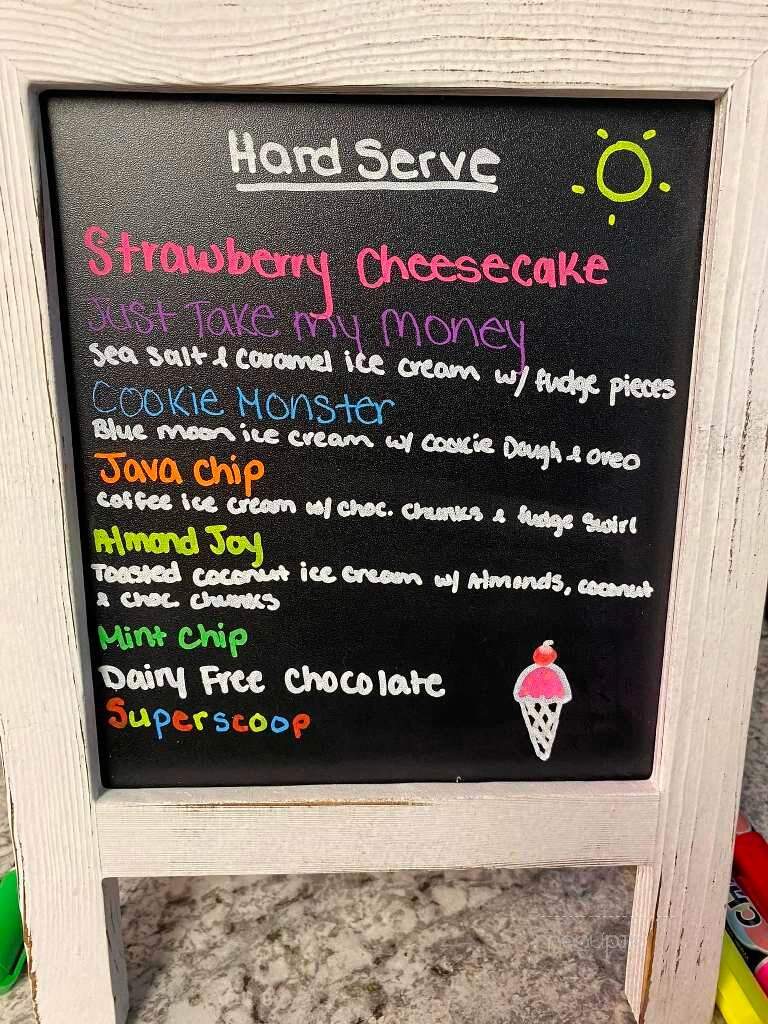 Hard Serve
Strawberry Cheesecake
Just Take my Money
Sea Salt & Caramel ice cream w/ fudge pieces
Cookie Monster
Blue moon ice cream w/ cookie Dough & oreo
Java Chip
coffee ice cream w/ choc. chunks & fudge swirl
Almond Joy
Toasted coconut ice cream w/ Almonds, coconut
& choc. chunks
Mint Chip
Dairy Free Chocolate
Superscoop